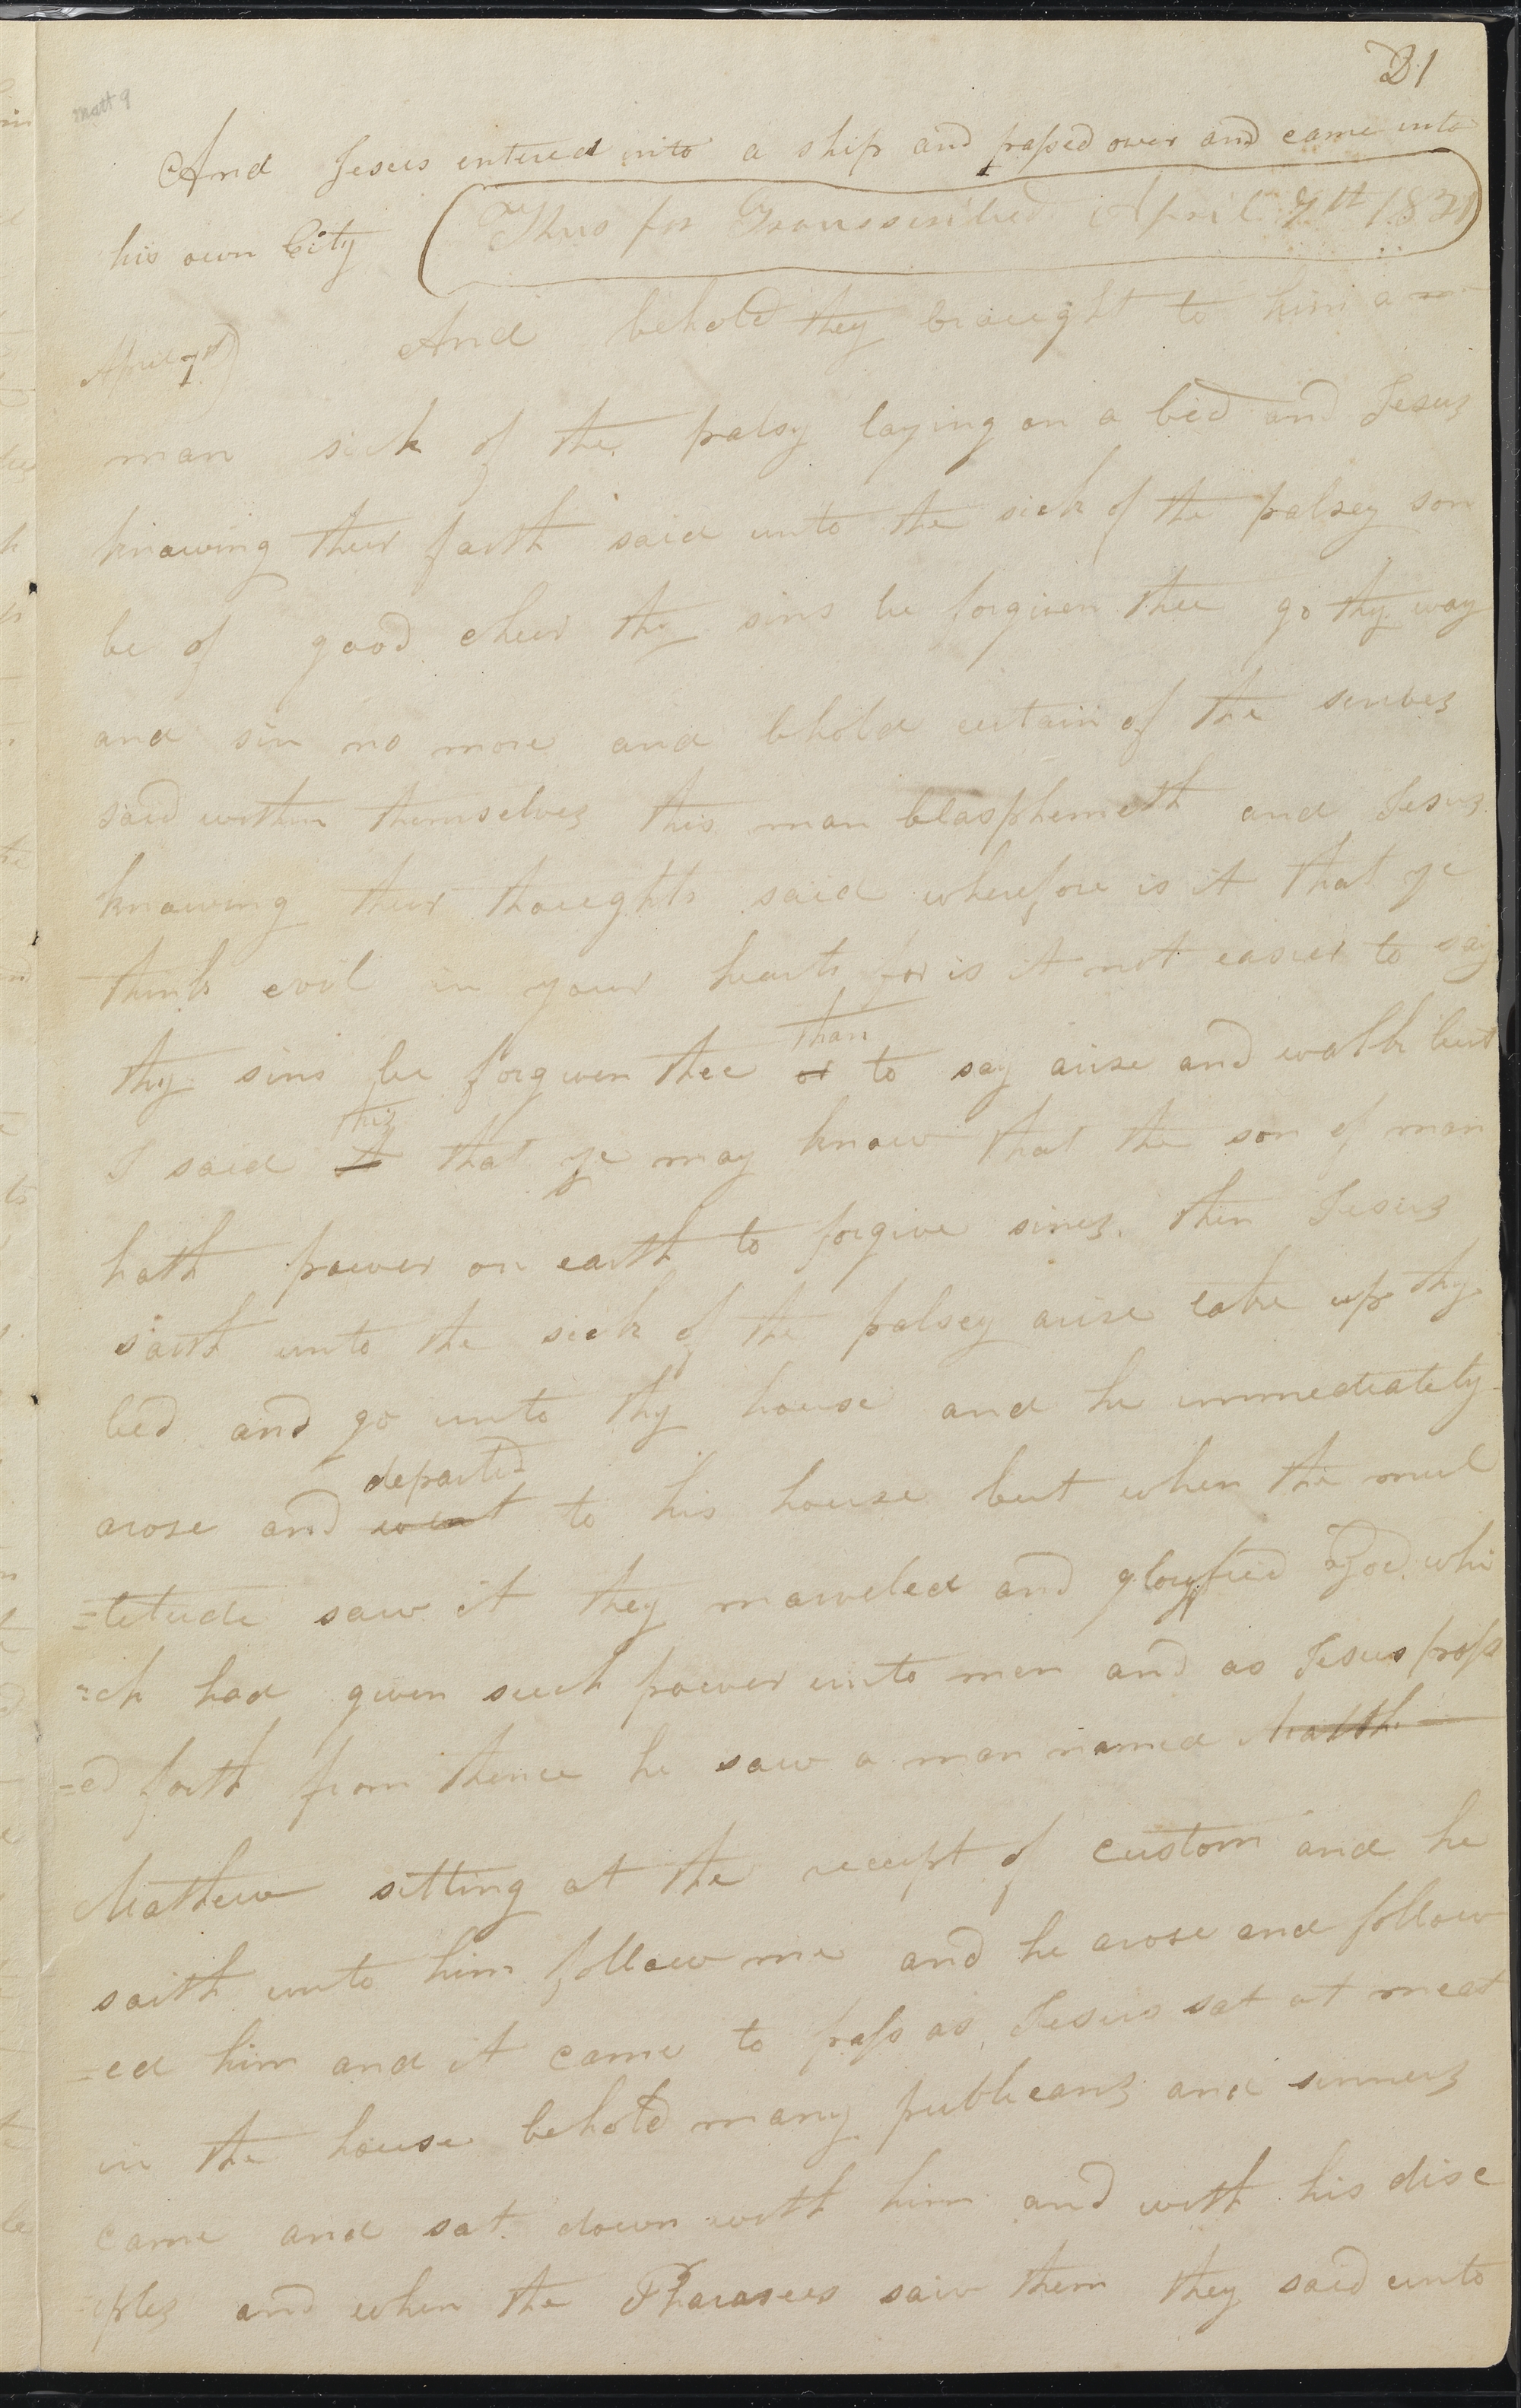 21
Matt 9
And Jesus entered into a ship and passed over and came into
his own City (Thus far Transscribed April 7th 1831)
April 7th) And behold they braught to him a
man sick of the palsy laying on a bed and Jesus
knowing their faith said unto the sick of the palsey son
be of good cheer thy sins be forgiven thee go thy way
and sin no more and behold certain of the scribes
said within themselves this man blasphemeth and Jesus
knowing their thoughts said wherefore is it that ye
think evil in your hearts for is it not easier to say
thy sins be forgiven thee or than to say arise and walk but
I said it this that ye may know that the son of man
hath power on earth to forgive sines. then Jesus
saith unto the sick of the palsey arise take up thy
bed and go unto thy house and he immediately
arose and went departed to his house but when the mul
=titude saw it they marveled and gloryfied God whi
=ch had given such power unto men and as Jesus pass
=ed forth from thence he saw a man named Matth
Mathew sitting at the receipt of custom and he
saith unto him follow me and he arose and follow
=ed him and it came to pass as Jesus sat at meat
in the house behold many publicans and sinners
came and sat down with him and with his disc
iples and when the Pharasees saw them they said unto